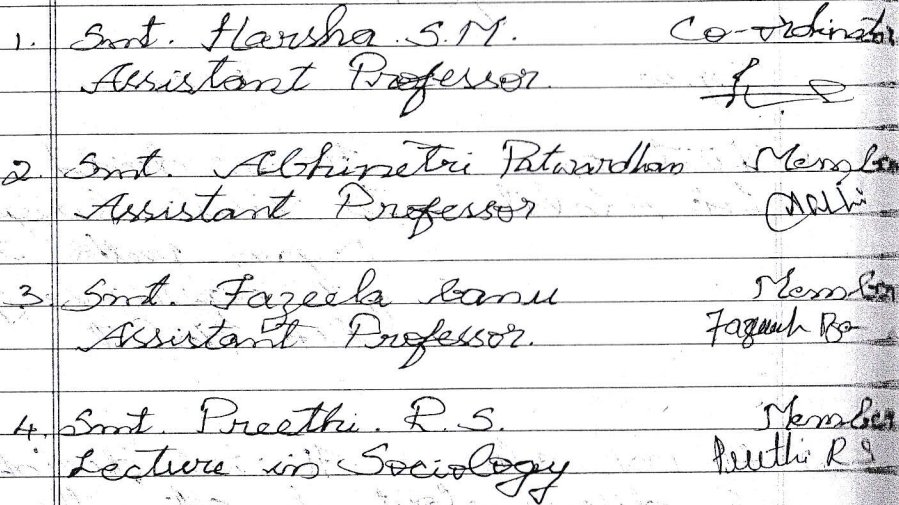 1. Smt. Harsha S.M. Co-ordinator
Assistant Professor.
2. Smt. Abhinetri Patwardhan Member
Assistant Professor Abhi
3. Smt. Fazeela banu Member
Assistant Professor.
4. Smt. Preethi. R.S. Member
Lecture in Sociology Preethi R S